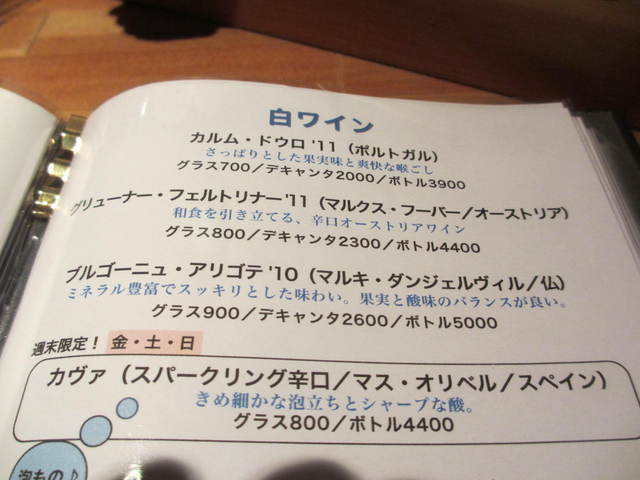 白ワイン
カルム・ドウロ '11（ポルトガル）
さっぱりとした果実味と爽快な喉ごし
グラス700／デキャンタ2000／ボトル3900
グリューナー・フェルトリナー'11（マルクス・フーバー/オーストリア）
和食を引き立てる、辛口オーストリアワイン
グラス800／デキャンタ2300／ボトル4400
ブルゴーニュ・アリゴテ '10（マルキ・ダンジェルヴィル/仏）
ミネラル豊富でスッキリとした味わい。果実と酸味のバランスが良い。
グラス900／デキャンタ2600／ボトル5000
週末限定！ 金・土・日
カヴァ（スパークリング辛口／マス・オリベル／スペイン）
きめ細かな泡立ちとシャープな酸。
グラス800／ボトル4400
泡もの♪